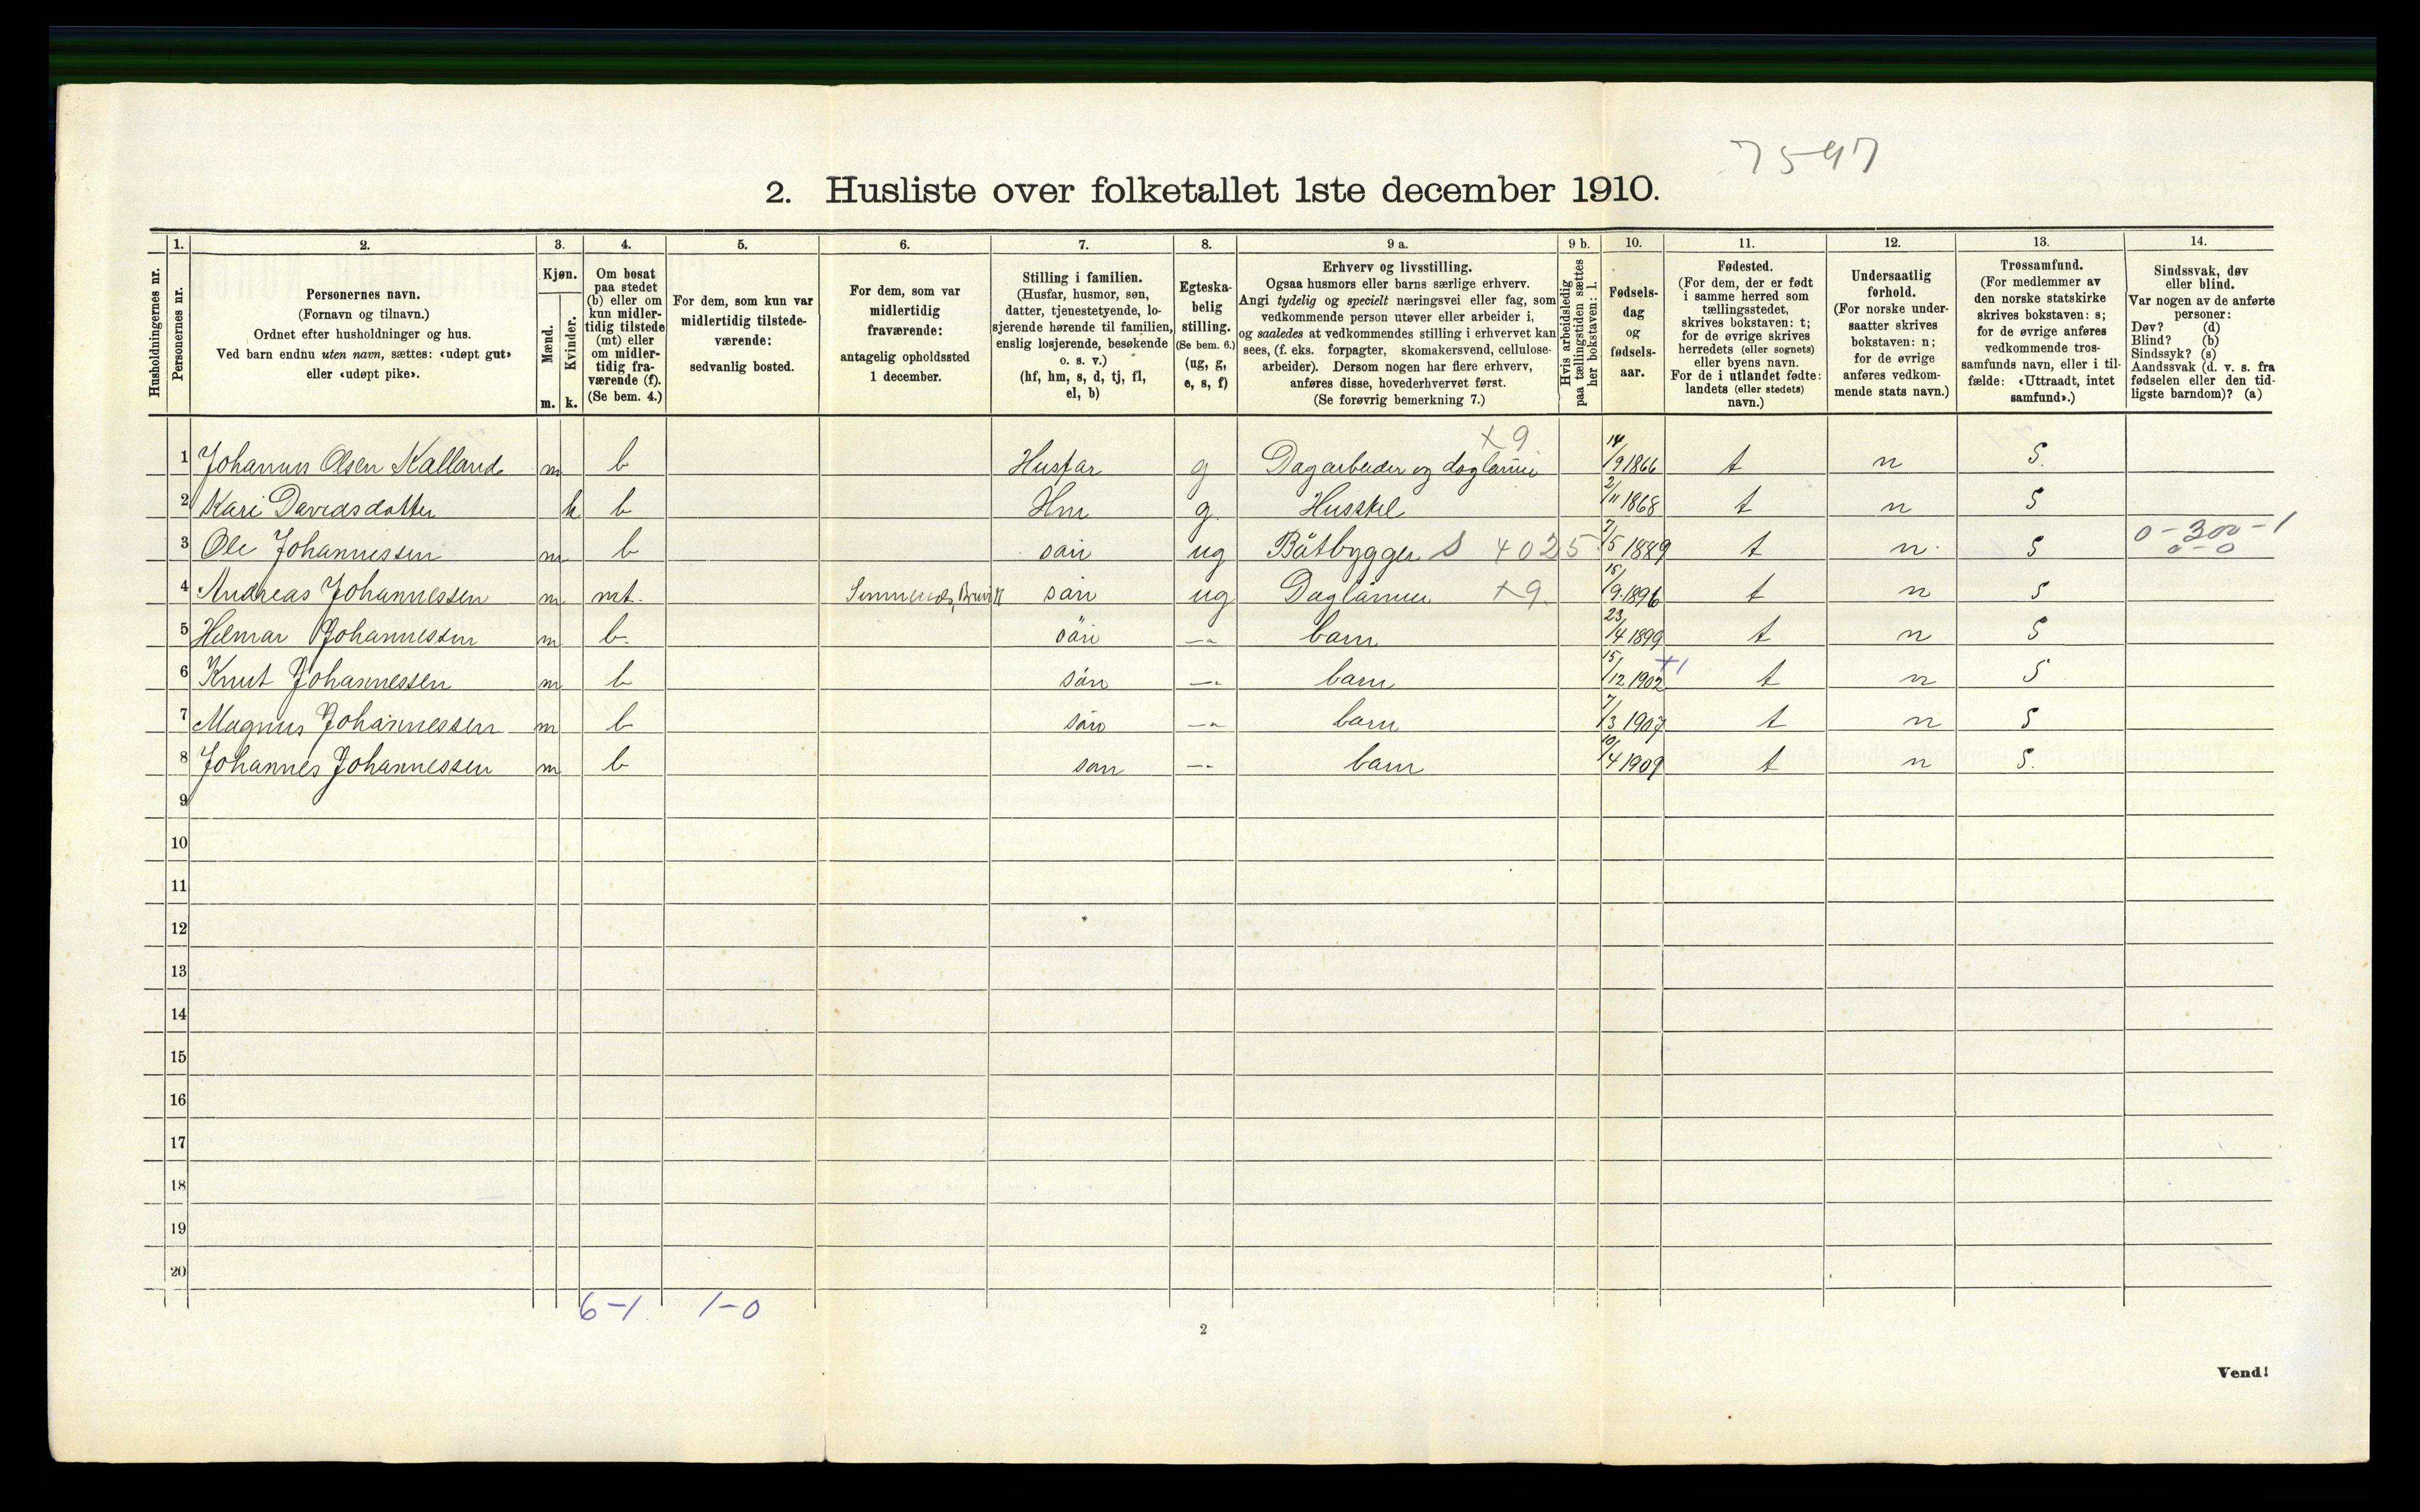 7597
2. Husliste over folketallet 1ste december 1910.
Husholdningernes nr.
1.
Personernes nr.
2.
Personernes navn.
(Fornavn og tilnavn.)
Ordnet efter husholdninger og hus.
Ved barn endnu uten navn, sættes: «udøpt gut»
eller «udøpt pike».
3.
Kjøn.
Mænd.
Kvinder.
m. k.
4.
Om bosat
paa stedet
(b) eller om
kun midler-
tidig tilstede
(mt) eller
om midler-
tidig fra-
værende (f).
(Se bem. 4.)
5.
For dem, som kun var
midlertidig tilstede-
værende:
sedvanlig bosted.
6.
For dem, som var
midlertidig
fraværende:
antagelig opholdssted
1 december.
7.
Stilling i familien.
(Husfar, husmor, søn,
datter, tjenestetyende, lo-
sjerende hørende til familien,
enslig losjerende, besøkende
o. s. v.)
(hf, hm, s, d, tj, fl,
el, b)
8.
Egteska-
belig
stilling.
(Se bem. 6.)
(ug, g,
e, s, f)
9 a.
Erhverv og livsstilling.
Ogsaa husmors eller barns særlige erhverv.
Angi tydelig og specielt næringsvei eller fag, som
vedkommende person utøver eller arbeider i,
og saaledes at vedkommendes stilling i erhvervet kan
sees, (f. eks. forpagter, skomakersvend, cellulose-
arbeider). Dersom nogen har flere erhverv,
anføres disse, hovederhvervet først.
(Se forøvrig bemerkning 7.)
9 b.
Hvis arbeidsledig
paa tællingstiden sættes
her bokstaven: l.
10.
Fødsels-
dag
og
fødsels-
aar.
11.
Fødested.
(For dem, der er født
i samme herred som
tællingsstedet,
skrives bokstaven: t;
for de øvrige skrives
herredets (eller sognets)
eller byens navn.
For de i utlandet fødte:
landets (eller stedets)
navn.)
12.
Undersaatlig
forhold.
(For norske under-
saatter skrives
bokstaven: n;
for de øvrige
anføres vedkom-
mende stats navn.)
13.
Trossamfund.
(For medlemmer av
den norske statskirke
skrives bokstaven: s;
for de øvrige anføres
vedkommende tros-
samfunds navn, eller i til-
fælde: «Uttraadt, intet
samfund».)
14.
Sindssvak, døv
eller blind.
Var nogen av de anførte
personer:
Døv? (d)
Blind? (b)
Sindssyk? (s)
Aandssvak (d. v. s. fra
fødselen eller den tid-
ligste barndom)? (a)
1 Johannes Olsen Kalland m b Husfar g Dagarbeider og x9 14/9 1866 t n S.
2 Kari Davidsdotter k b Hm g. Husstel 2/11 1868 t n S
3 Ole Johannessen m b sön ug Båtbygger S 4025 7/5 1889 t n. S 0-300-1
0-0
4 Andreas Johannessen m mt. sön ug x9. 15/9 1896 t n S
5 Helmar Johannessen m b. sön barn 23/4 1899 t n S
6 Knut Johannessen m b sön barn 15/12 1902 +1 t n S
7 Magnus Johannessen m b sön barn 7/3 1907 t n S
8 Johannes Johannessen m b son barn 10/4 1909 t n S.
9
10
11
12
13
14
15
16
17
18
19
20
6-1 1-0
2
Vend!